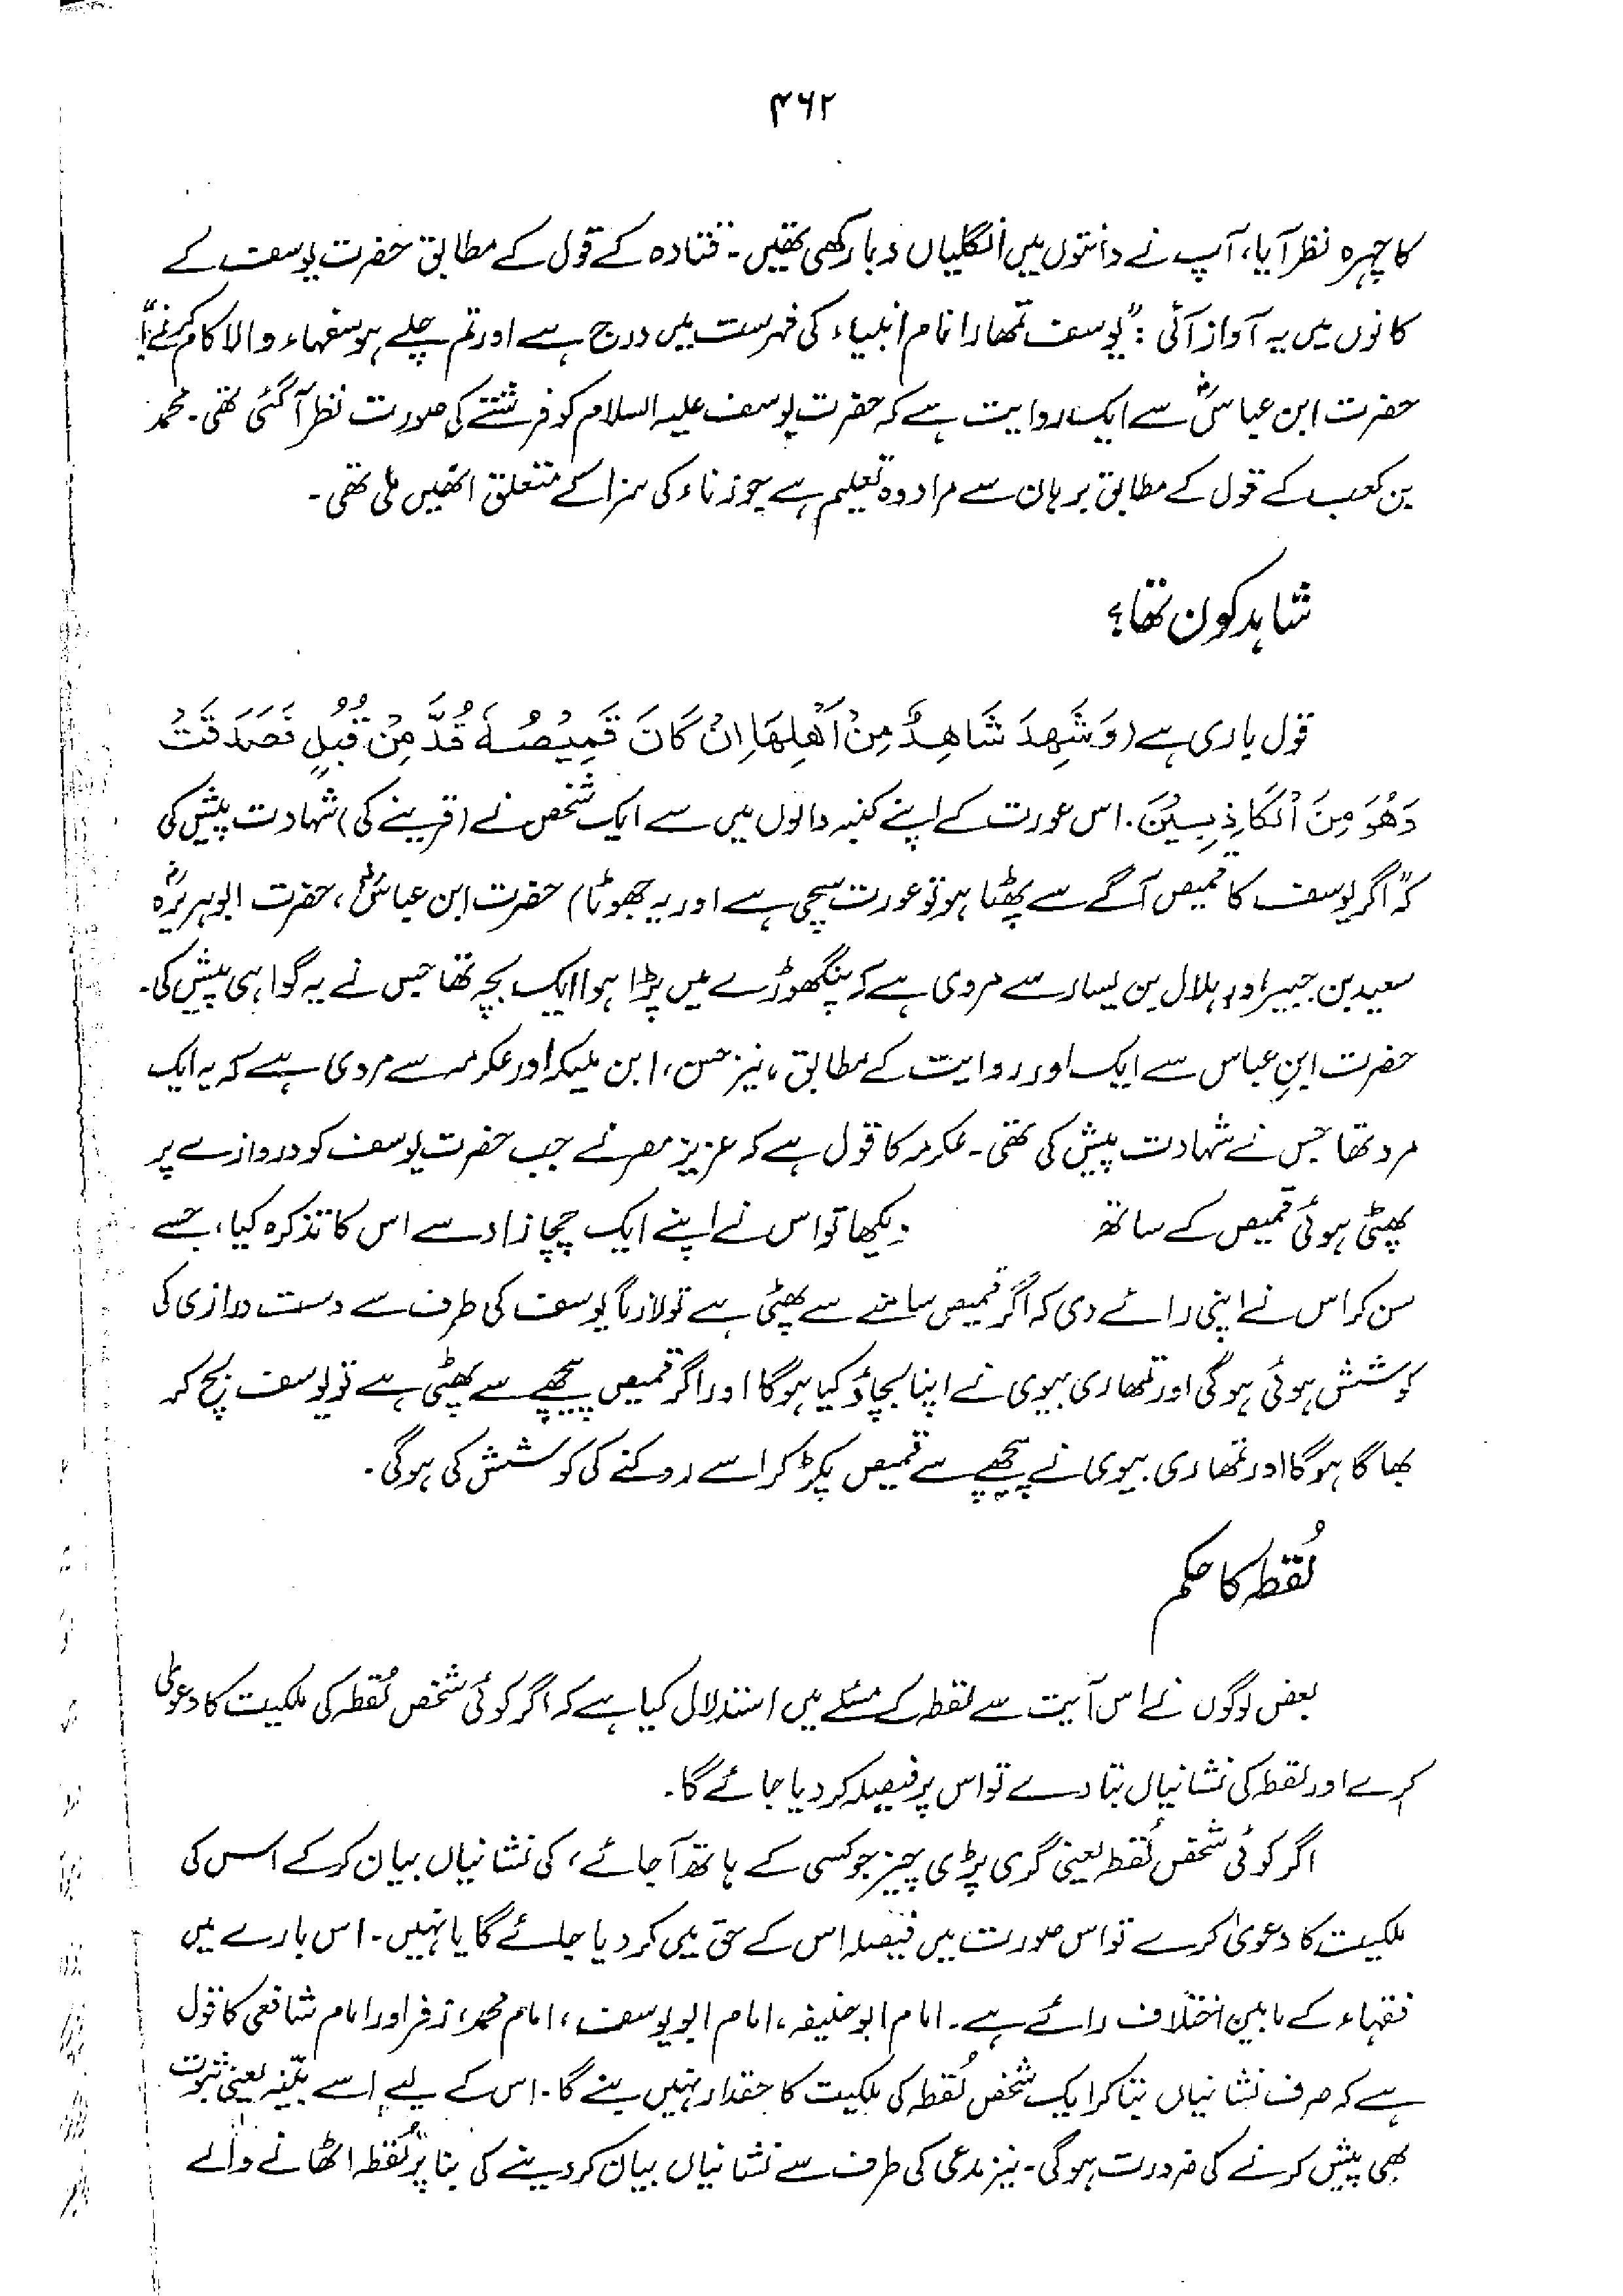 ۴۶۲
کا چہرہ نظر آیا، آپ نے دانتوں میں انگلیاں دبا رکھی تھیں۔ قتادہ کے قول کے مطابق حضرت یوسف کے
کانوں میں یہ آواز آئی : "یوسف تمھارا نام انبیاء کی فہرست میں درج ہے اور تم چلے ہو سفہاء والا کام کرنے"!
حضرت ابن عباسؓ سے ایک روایت ہے کہ حضرت یوسف علیہ السلام کو فرشتے کی صورت نظر آ گئی تھی۔ محمد
بن کعب کے قول کے مطابق برہان سے مراد وہ تعلیم ہے جو زناء کی سزا کے متعلق انھیں ملی تھی۔
شاہد کون تھا؟
قول باری ہے (وَشَهِدَ شَاهِدٌ مِنْ اَهْلِهَا اِنْ كَانَ قَمِيْصُهٗ قُدَّ مِنْ قُبُلٍ فَصَدَقَتْ
وَهُوَ مِنَ الْكَاذِبِيْنَ. اس عورت کے اپنے کنبہ والوں میں سے ایک شخص نے (قرینے کی) شہادت پیش کی
کہ "اگر یوسف کا قمیص آگے سے پھٹا ہو تو عورت سچی ہے اور یہ جھوٹا) حضرت ابن عباسؓ، حضرت ابوہریرہؓ
سعید بن جبیر اور ہلال بن یسار سے مروی ہے کہ پنگھوڑے میں پڑا ہوا ایک بچہ تھا جس نے یہ گواہی پیش کی۔
حضرت ابنِ عباس سے ایک اور روایت کے مطابق، نیز حسن، ابن ملیکہ اور عکرمہ سے مروی ہے کہ یہ ایک
مرد تھا جس نے شہادت پیش کی تھی۔ عکرمہ کا قول ہے کہ عزیز مصر نے جب حضرت یوسف کو دروازے پر
پھٹی ہوئی قمیص کے ساتھ دیکھا تو اس نے اپنے ایک چچا زاد سے اس کا تذکرہ کیا، جسے
سن کر اس نے اپنی رائے دی کہ اگر قمیص سامنے سے پھٹی ہے تو لازماً یوسف کی طرف سے دست درازی کی
کوشش ہوئی ہوگی اور تمھاری بیوی نے اپنا بچاؤ کیا ہوگا اور اگر قمیص پیچھے سے پھٹی ہے تو یوسف بچ کر
بھاگا ہوگا اور تمھاری بیوی نے پیچھے سے قمیص پکڑ کر اسے روکنے کی کوشش کی ہوگی۔
لُقطہ کا حکم
بعض لوگوں نے اس آیت سے لقطہ کے مسئلے میں استدلال کیا ہے کہ اگر کوئی شخص لُقطہ کی ملکیت کا دعویٰ
کرے اور لقطہ کی نشانیاں بتا دے تو اس پر فیصلہ کر دیا جائے گا۔
اگر کوئی شخص لُقطہ یعنی گری پڑی چیز جو کسی کے ہاتھ آ جائے، کی نشانیاں بیان کر کے اس کی
ملکیت کا دعویٰ کرے تو اس صورت میں فیصلہ اس کے حق میں کر دیا جائے گا یا نہیں۔ اس بارے میں
فقہاء کے مابین اختلاف رائے ہے۔ امام ابو حنیفہ، امام ابو یوسف، امام محمد، زفر اور امام شافعی کا قول
ہے کہ صرف نشانیاں بتا کر ایک شخص لُقطہ کی ملکیت کا حقدار نہیں بنے گا۔ اس کے لیے اسے بیّنہ یعنی ثبوت
بھی پیش کرنے کی ضرورت ہوگی۔ نیز مدعی کی طرف سے نشانیاں بیان کر دینے کی بنا پر لُقطہ اٹھانے والے